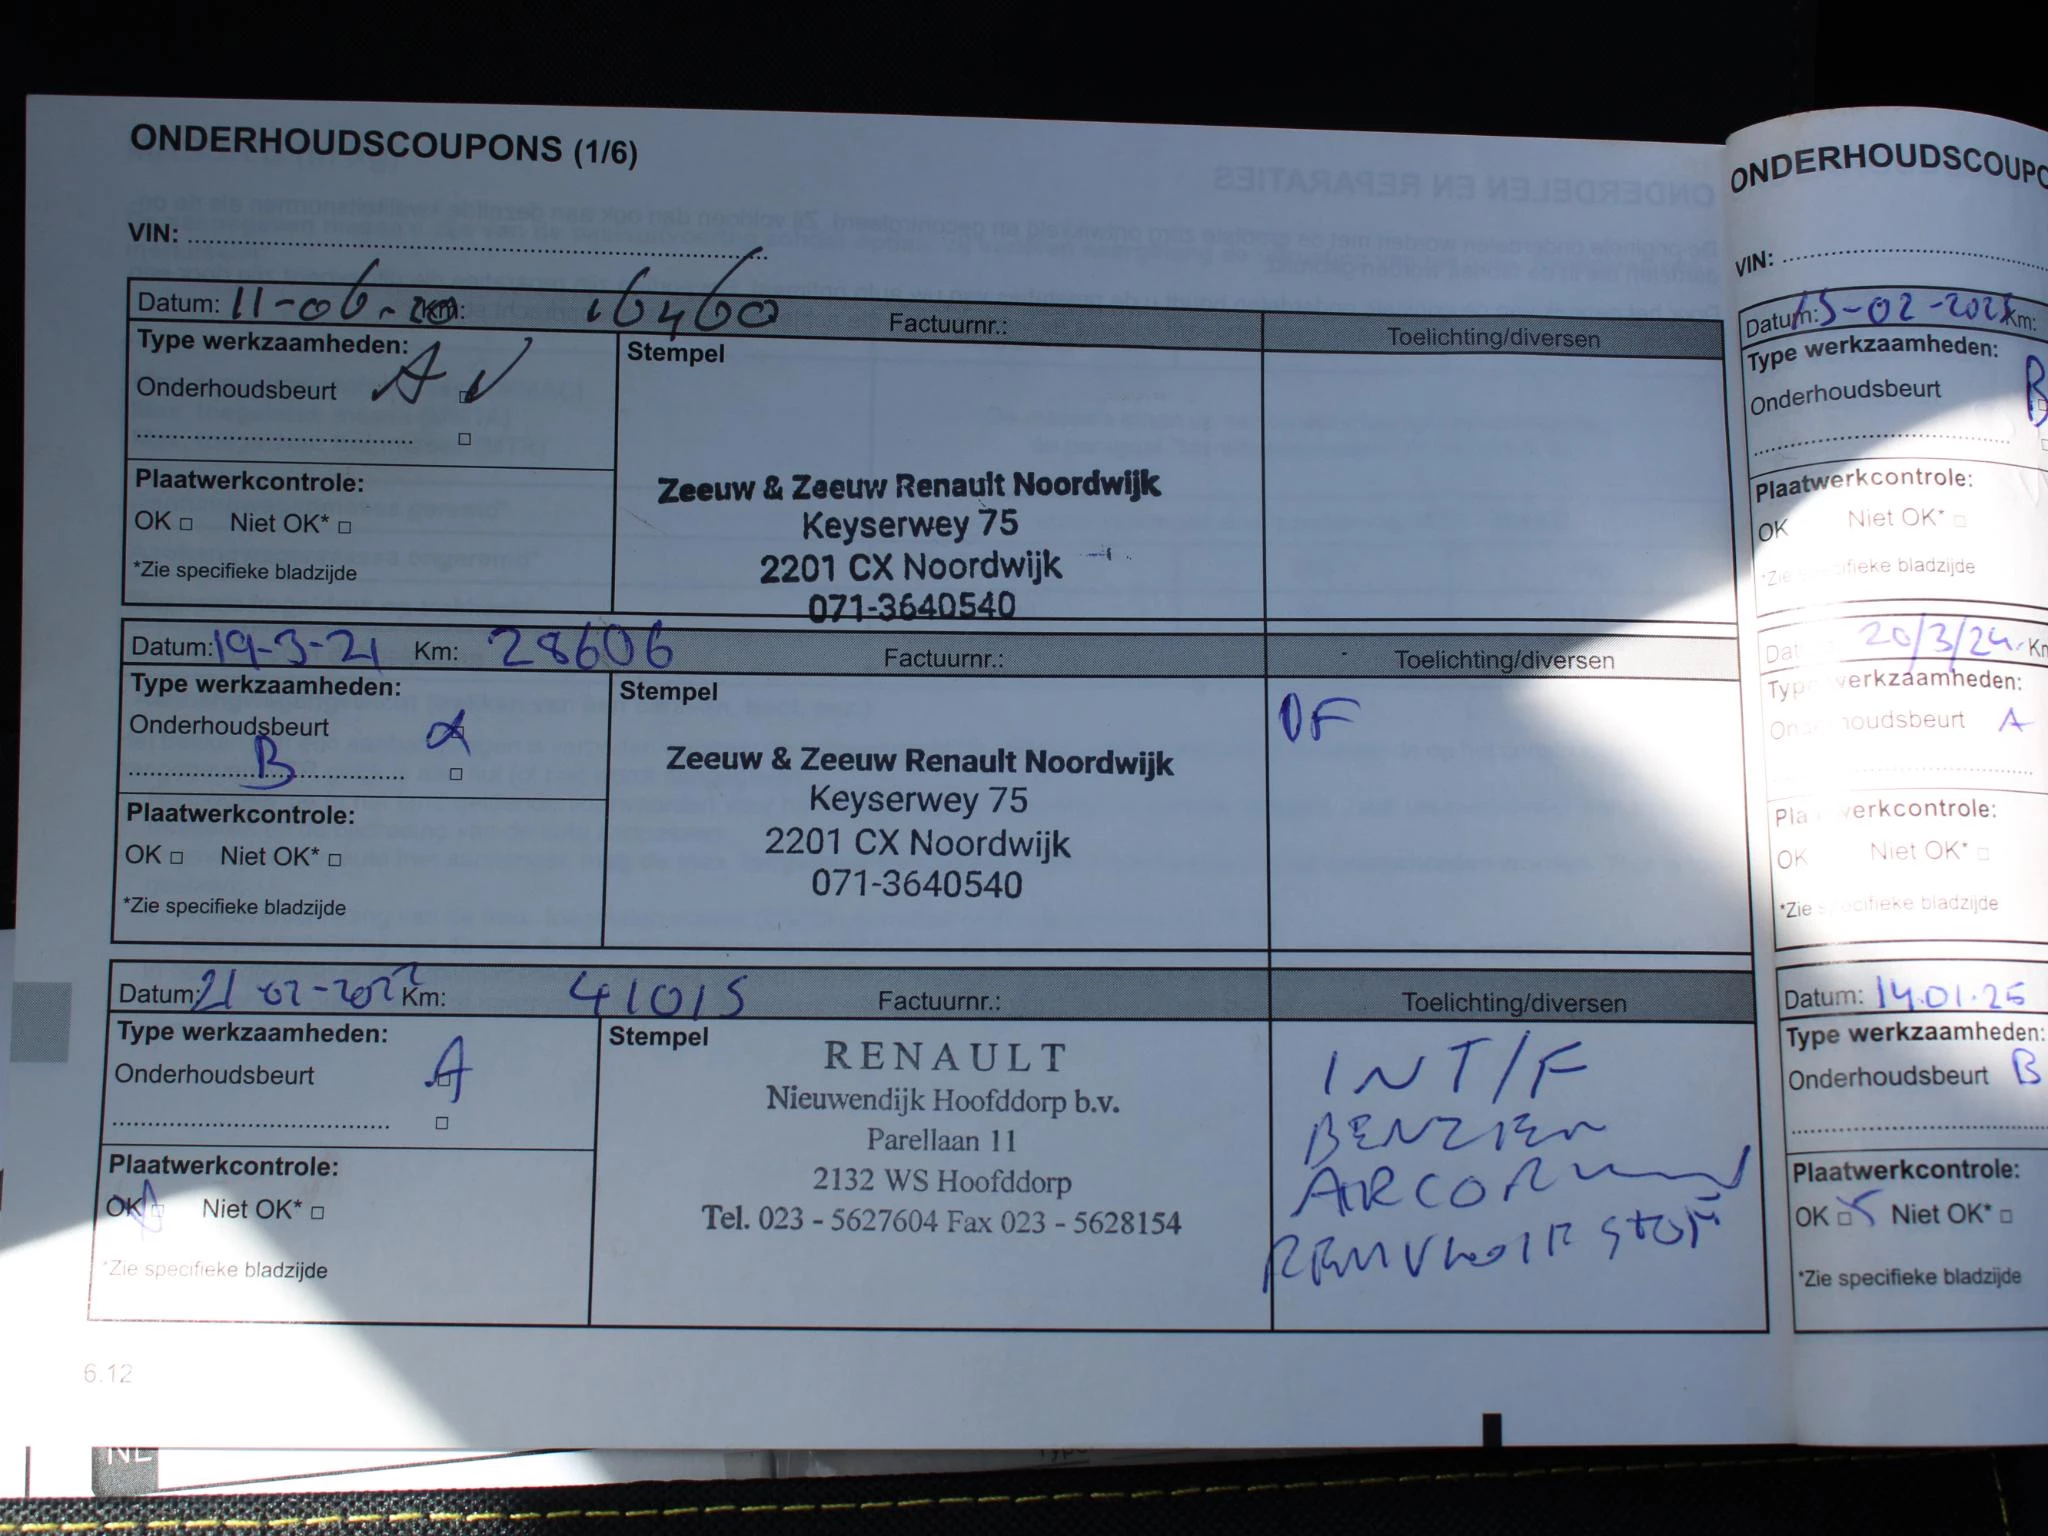 ONDERHOUDSCOUPONS (1/6)
VIN:
Datum: 11-06-20 Km: 16460 Factuurnr.: Toelichting/diversen
Type werkzaamheden: Stempel
Onderhoudsbeurt A
Plaatwerkcontrole:
OK Niet OK*
*Zie specifieke bladzijde
Zeeuw & Zeeuw Renault Noordwijk
Keyserwey 75
2201 CX Noordwijk
071-3640540
Datum: 19-3-21 Km: 28606 Factuurnr.: Toelichting/diversen
Type werkzaamheden: Stempel
Onderhoudsbeurt
B
Plaatwerkcontrole:
OK Niet OK*
*Zie specifieke bladzijde
Zeeuw & Zeeuw Renault Noordwijk
Keyserwey 75
2201 CX Noordwijk
071-3640540
OF
Datum: 21-02-2022 Km: 41015 Factuurnr.: Toelichting/diversen
Type werkzaamheden: Stempel
Onderhoudsbeurt A
Plaatwerkcontrole:
OK Niet OK*
*Zie specifieke bladzijde
RENAULT
Nieuwendijk Hoofddorp b.v.
Parellaan 11
2132 WS Hoofddorp
Tel. 023 - 5627604 Fax 023 - 5628154
INT/F
6.12
NL
ONDERHOUDSCOUPO
VIN:
Datum: 15-02- Km:
Type werkzaamheden:
Onderhoudsbeurt B
Plaatwerkcontrole:
OK Niet OK*
*Zie specifieke bladzijde
Datum: 20/3/24 Km
Type werkzaamheden:
Onderhoudsbeurt A
Plaatwerkcontrole:
OK Niet OK*
*Zie specifieke bladzijde
Datum: 14.01.25
Type werkzaamheden:
Onderhoudsbeurt B
Plaatwerkcontrole:
OK Niet OK*
*Zie specifieke bladzijde